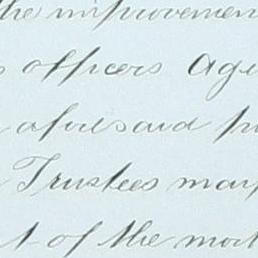 the improvemen
officers Age
aforesaid
Trustees may
t of the